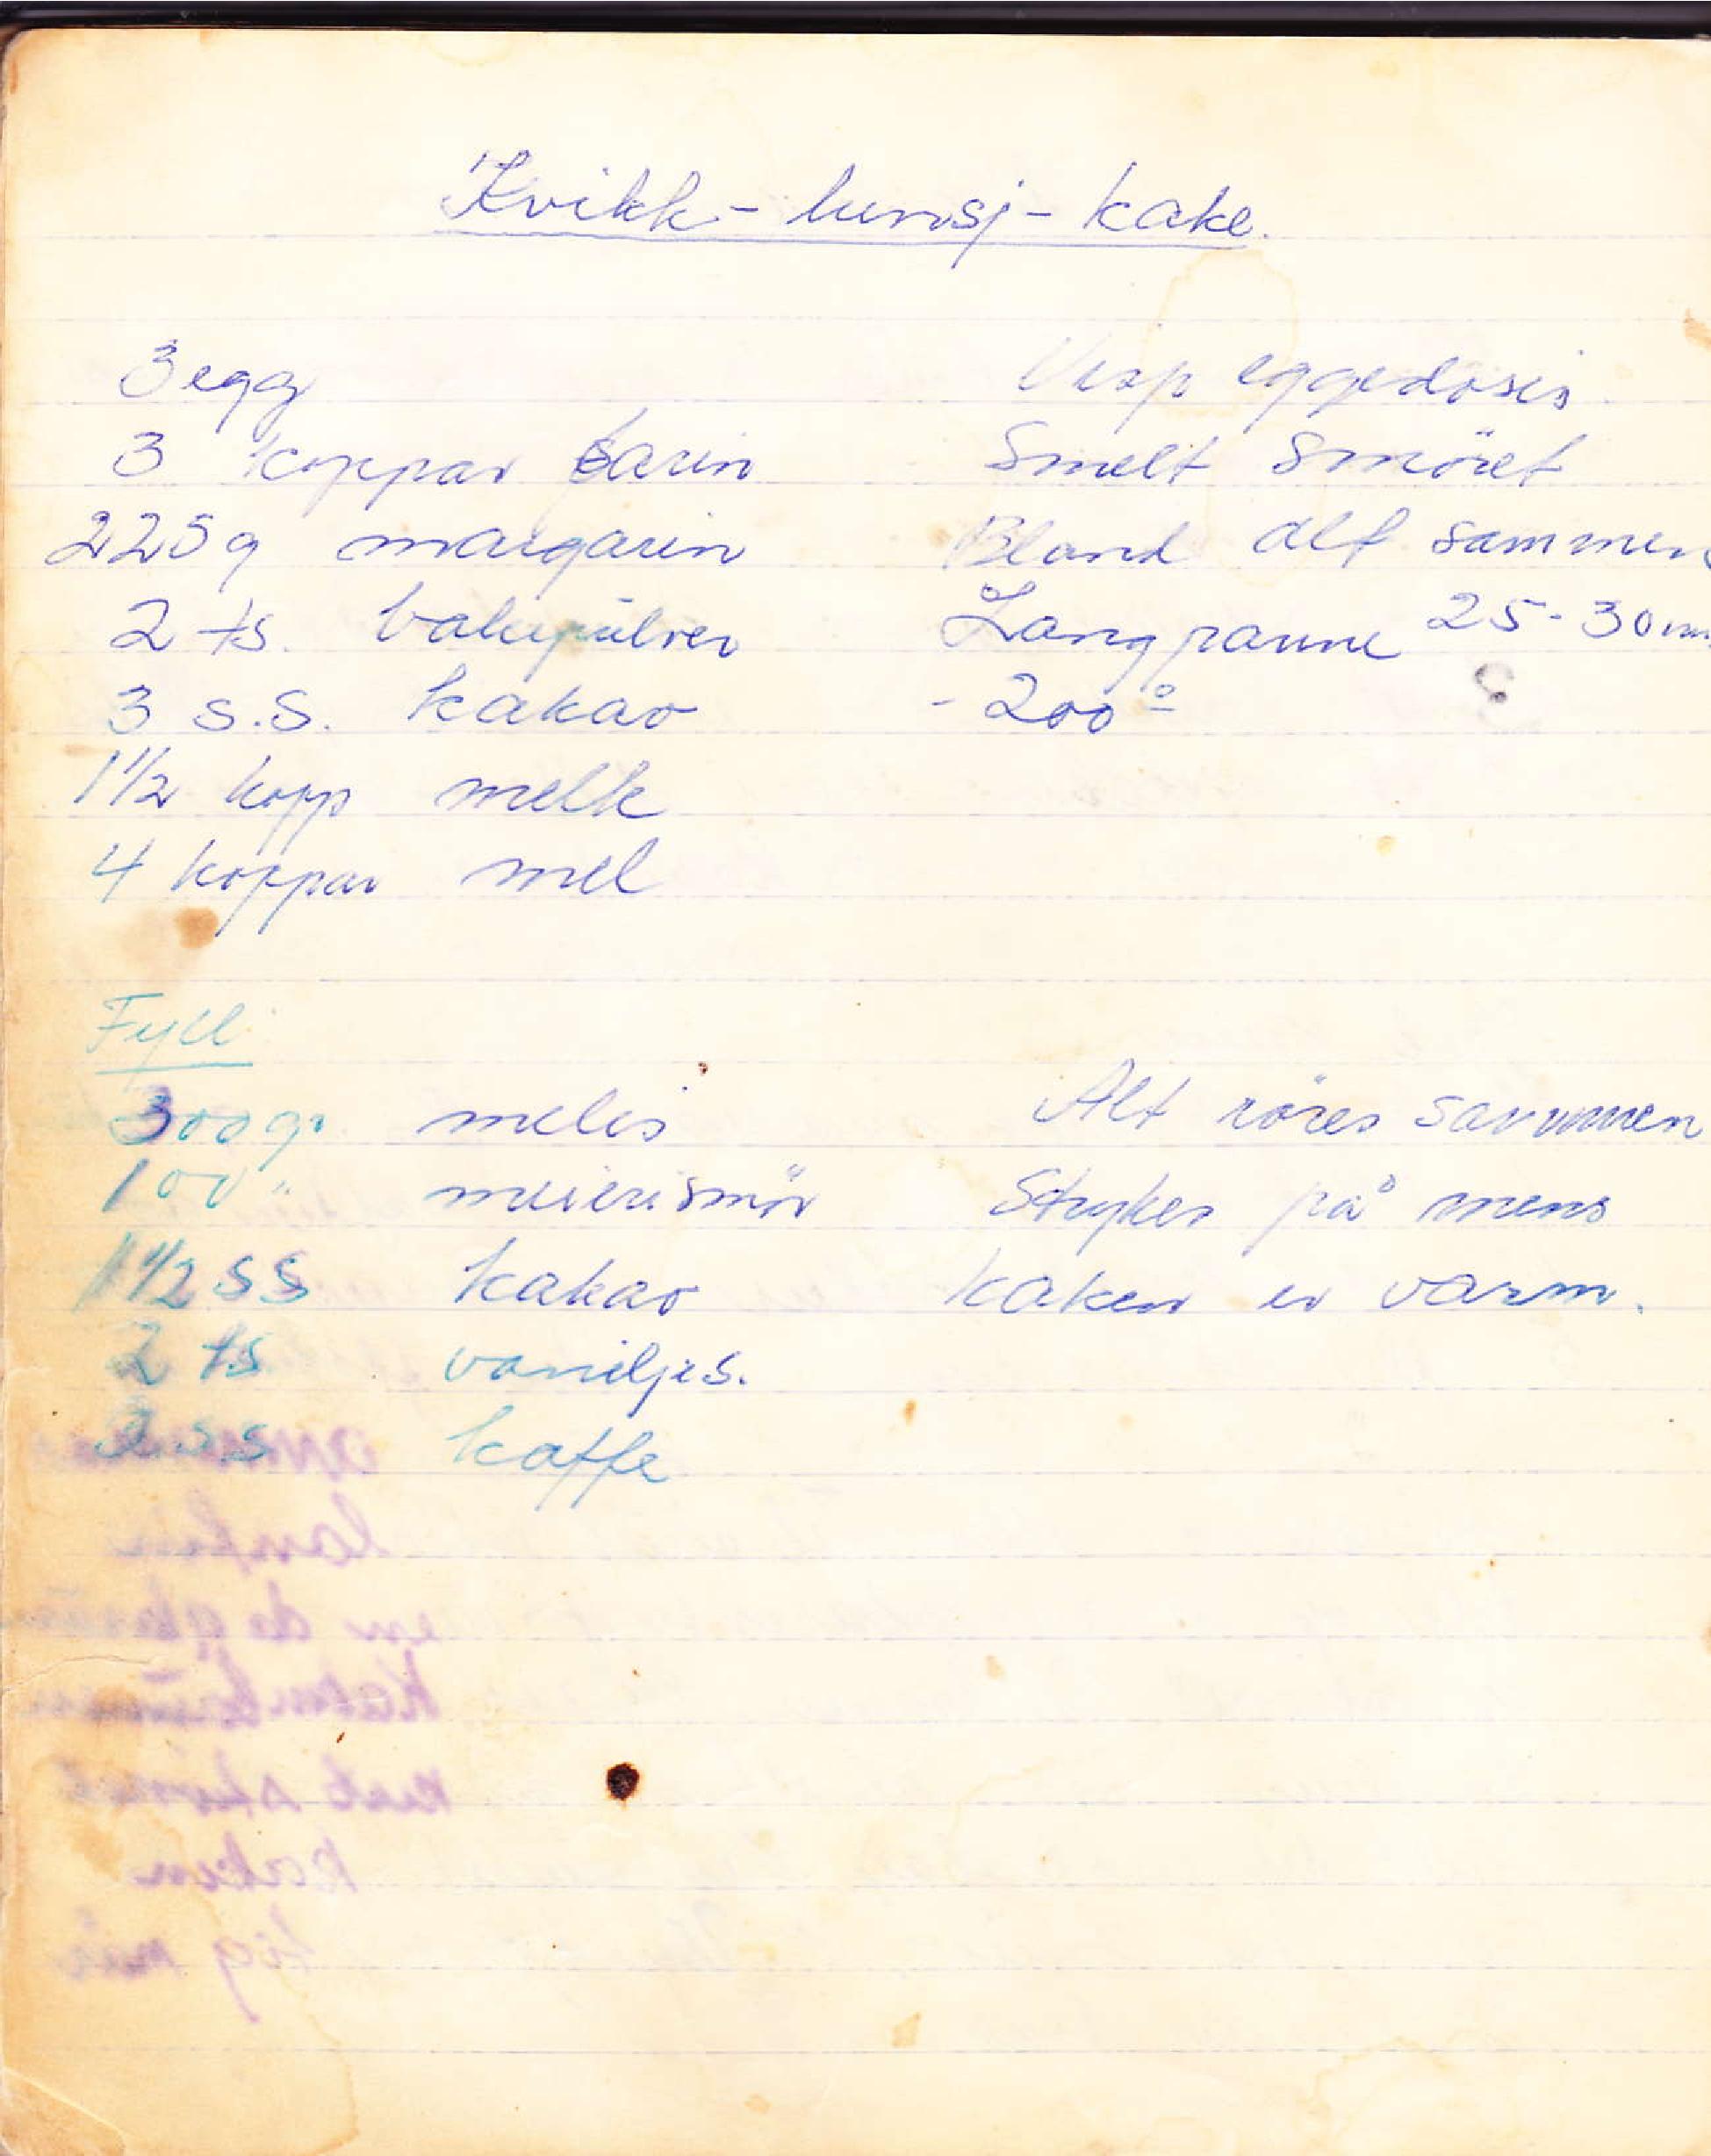 Kvikk-lunsj-kake.
3 egg
3 koppar farin
225 g margarin
2 ts. bakepulver
3 s.s. kakao
1 1/2 kopp melk
4 koppar mel
Visp eggedosis
Smelt smöret
Bland alt sammen
Langpanne 25-30 min
- 200°
Fyll
300 gr melis
100 " meierismör
1 1/2 ss kakao
2 ts vaniljes.
3 ss kaffe
Alt röres sammen
Strykes på mens
kaken er varm.